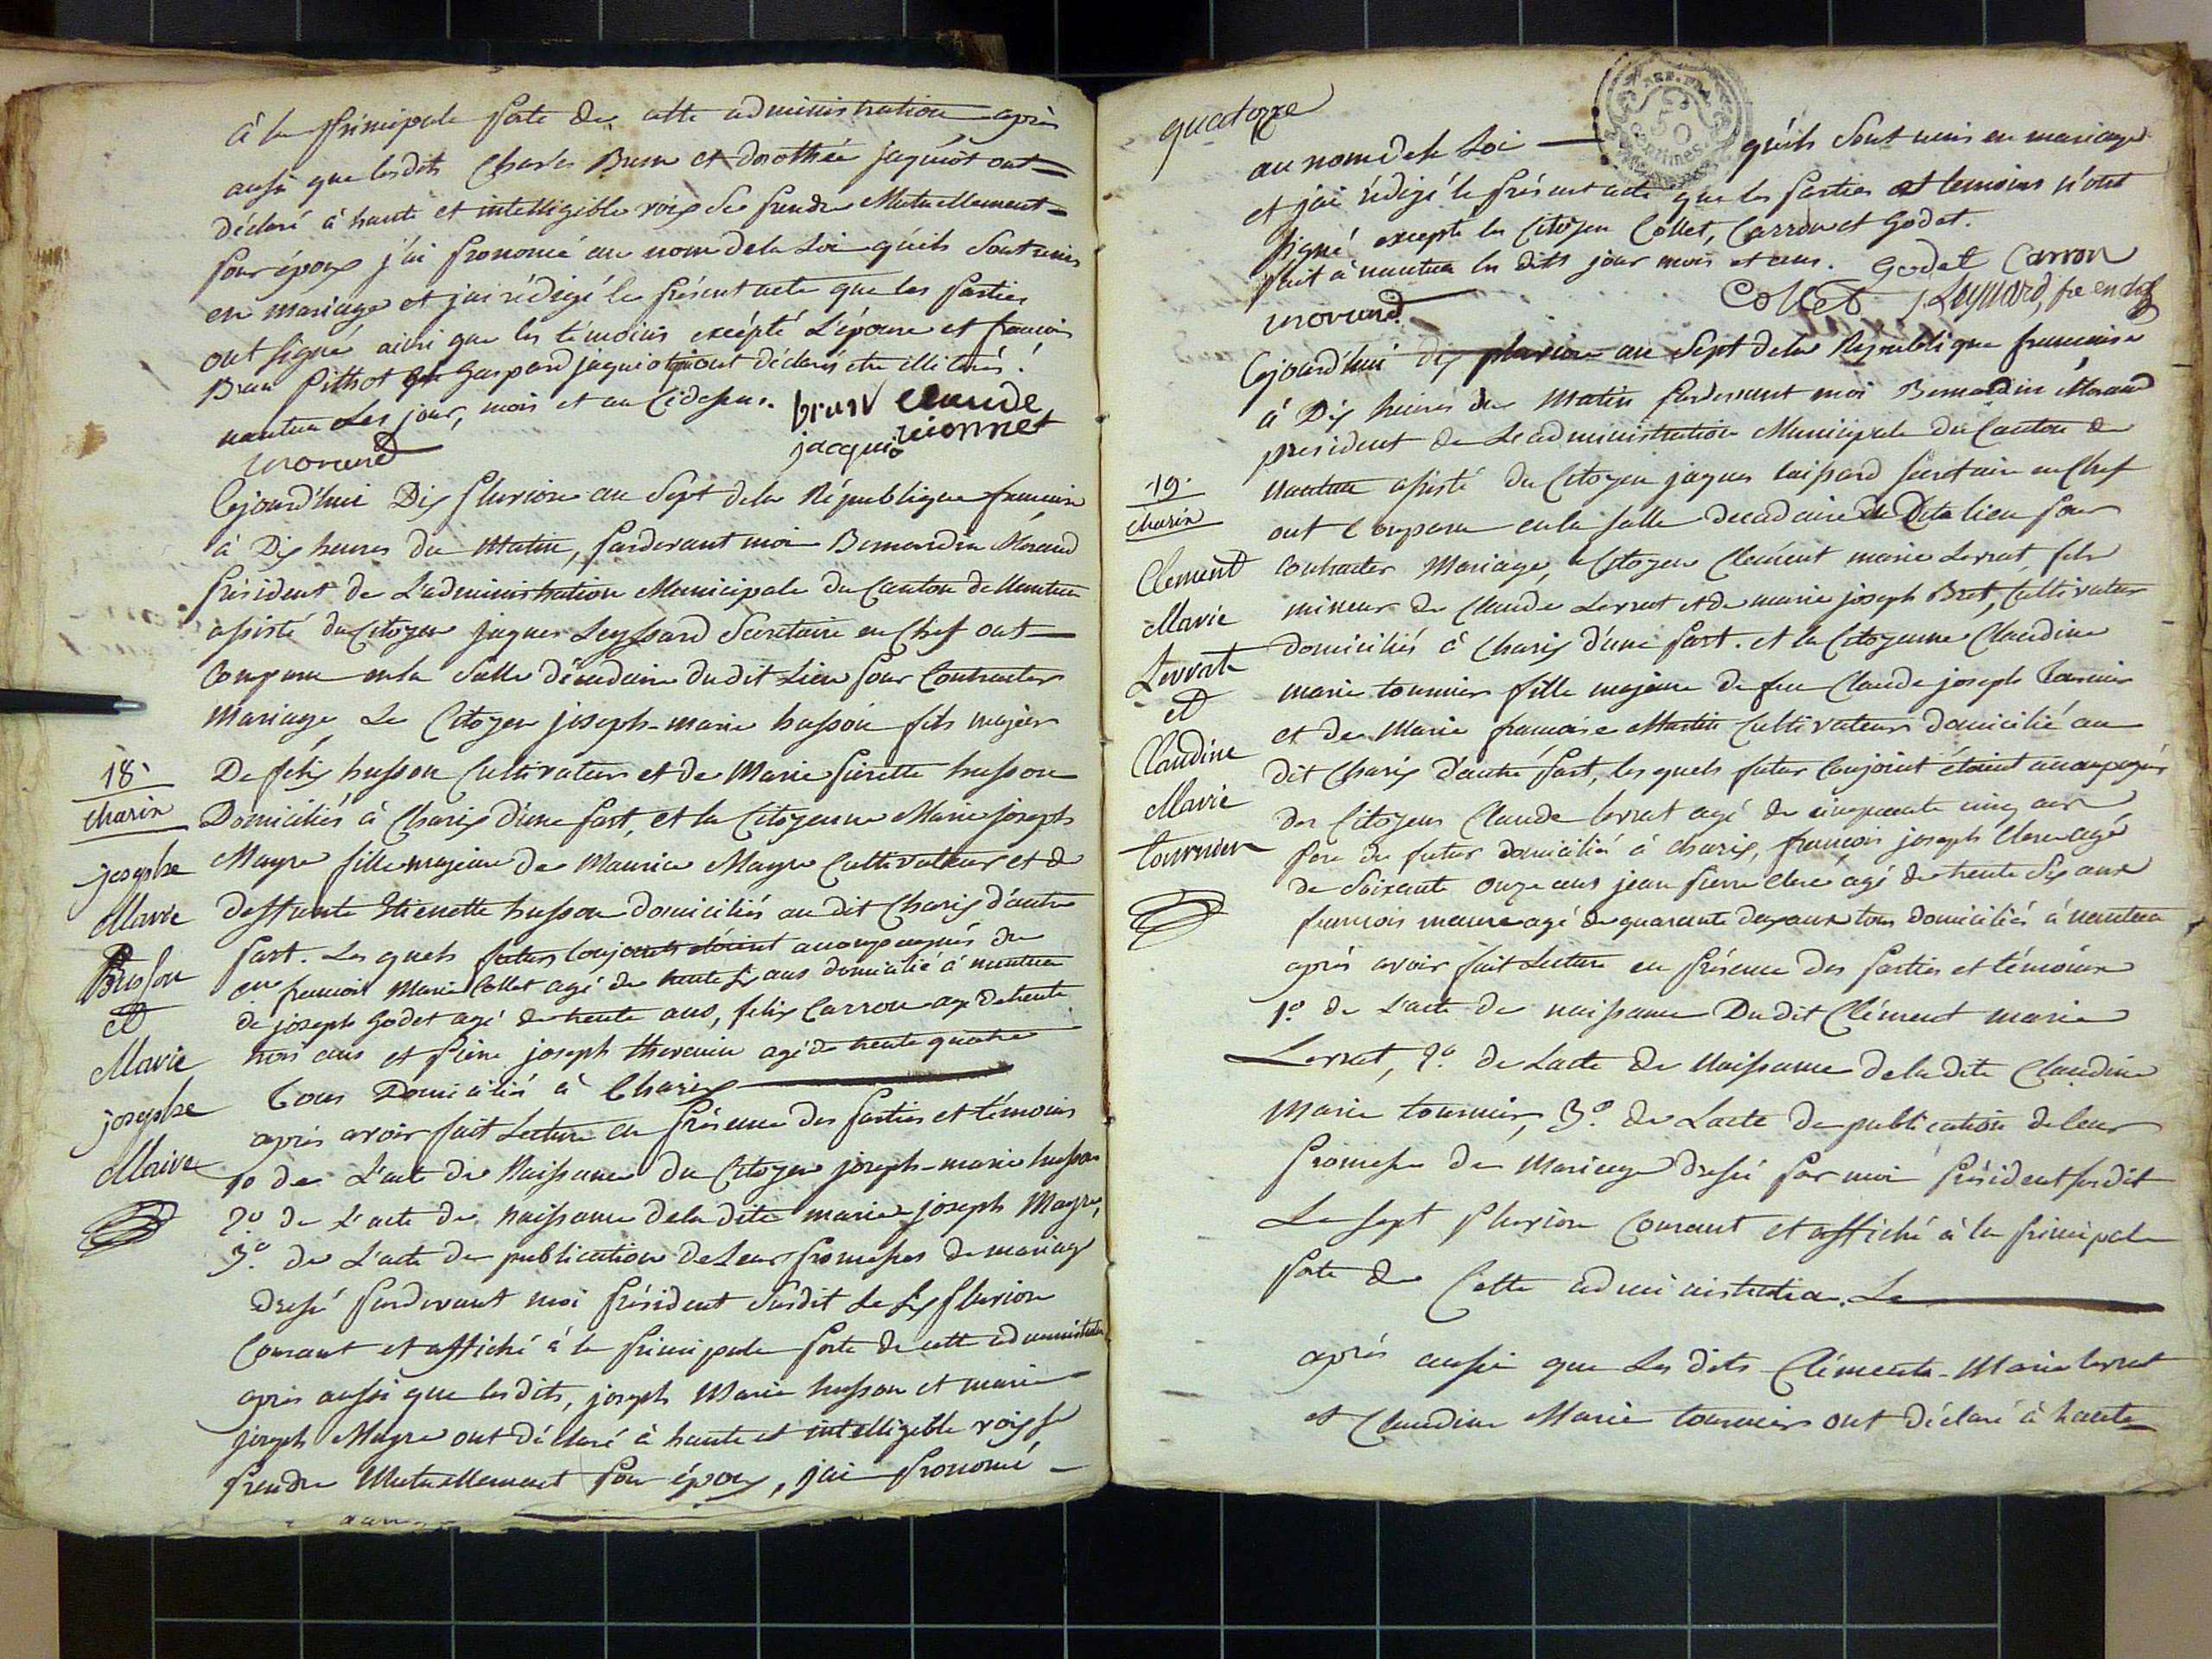 à la principale porte de cette administration après
aussi que lesdits Charles Brun et dorothée jaquiot ont
déclaré à haute et intelligible voix se prendre Mutuellement
pour époux j'ai prononcé au nom de la Loi qu'ils Sont unis
en mariage et j'ai rédigé le présent acte que les parties
ont signé ainsi que les témoins excépté L'épouse et francois
Brun Pithiot Gaspard jaquiot qui ont déclarés etre illiterés.
nantua Les jour, mois et an Cidessus. brun Claude
morand jacquio vionnet
Cejourd'hui Dix pluviose an Sept de la République francaise
à Dix heures du Matin, pardevant moi Bernardin Morand
président de L'administration Municipale du Canton de Nantua
assisté du Citoyen jaques Leyssard Secretaire en Chef ont
Comparu en la Salle décadaire dudit Lieu pour Contracter
Mariage Le Citoyen joseph-marie husson fils majeur
18.
charix
josephe
Marie
husson
et
Marie
josephe
Maire
De félix husson Cultivateur et de Marie pierette husson
Domiciliés à Charix d'une part, et la Citoyenne Marie joseph
Mayre fille majeure de Maurice Mayre Cultivateur et de
deffunte Etienette husson domiciliés au dit Charix d'autre
part. Les quels futurs Conjoints étoient accompagnés du
cen francois Marie Collet agé de trente six ans domicilié à nantua
de joseph Godet agé de trente ans, felix Carron agé de trente
trois ans et pierre joseph thevenin agé de trente quatre
Tous Domiciliés à Charix
après avoir fait Lecture en présence des parties et témoins
1o de L'acte de Naissance du Citoyen joseph-marie husson
2o de L'acte de naissance de la dite marie joseph Mayre,
3o de L'acte de publication de Leurs promesses de mariage
dressé pardevant moi président Susdit le Six pluviose
Courant et affiché à la principale porte de cette administration
après aussi que lesdits, joseph Marie husson et marie
joseph Mayre ont déclaré à haute et intelligible voix se
prendre Mutuellement pour époux, j'ai prononcé
quatorze
au nom de la Loi qu'ils Sont unis en mariage
et j'ai rédigé le présent acte que les parties et temoins n'ont
signé excepté les Citoyen Collet, Carron et Godet.
fait à nantua les dits jour mois et ans. Godet Carron
morand Collet Leyssard, sre en chef
Cejourd'hui dix pluviose an Sept de la République francaise
à Dix heures du Matin pardevant moi Bernardin Morand
president de L'administration Municipale du Canton de
Nantua assisté du Citoyen jaques laissard secretaire en Chef
ont Comparu en la salle decadaire du Dit lieu pour
19.
charix
Clement
Marie
Levrat
et
Claudine
Marie
tournier
Contracter Mariage, le Citoyen Clément marie Levrat, fils
mineur de Claude Levrat et de marie joseph Bret, Cultivateur
domiciliés à Charix d'une part. et la Citoyenne Claudine
marie tournier fille majeure de feu Claude joseph Tournier
et de Marie francoise Martin Cultivateurs domicilié au
dit Charix d'autre part, les quels futur Conjoint étoient accompagnés
des Citoyens Claude levrat agé de cinquante cinq ans
pere du futur domicilié à charix, francois joseph Clerc agé
de Soixante onze ans jean pierre Clerc agé de trente Six ans
francois maure agé de quarante deux ans tous domiciliés à nantua
après avoir fait Lecture en présence des parties et témoins
1o de L'acte de naissance Dudit Clément marie
Levrat, 2o de L'acte de Naissance de la dite Claudine
Marie tournier, 3o de L'acte de publication de leur
promesse de Mariage dressé par moi président susdit
Le Sept pluviose Courant et affiché à la principale
porte de Cette administration. Le
après aussi que Les dits Clément-Marie levrat
et Claudine Marie tournier ont déclaré à haute